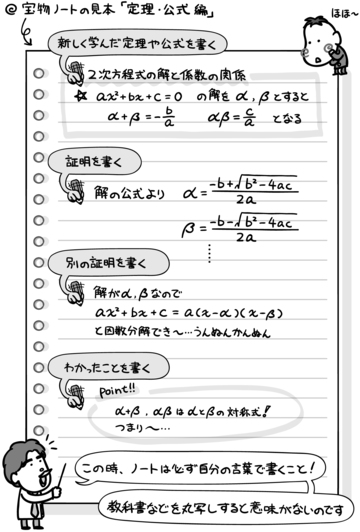 ◎ 宝物ノートの見本「定理・公式 編」
ほほ〜
新しく学んだ定理や公式を書く
2次方程式の解と係数の関係
☆ ax²+bx+c=0 の解を α, β とすると
α+β=-b/a αβ=c/a となる
証明を書く
解の公式より α=(-b+√(b²-4ac))/2a
β=(-b-√(b²-4ac))/2a
⋮
別の証明を書く
解がα,βなので
ax²+bx+c = a(x-α)(x-β)
と因数分解でき〜…うんぬんかんぬん
わかったことを書く
Point!!
α+β, αβ は αとβの対称式!
つまり〜…
この時、ノートは必ず自分の言葉で書くこと!
教科書などを丸写しすると意味がないのです